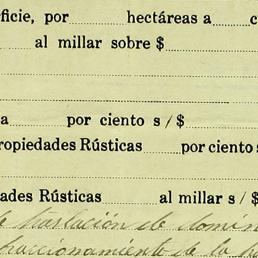 ficie, por ........ hectáreas a ........ c
........ al millar sobre $ ........
a ........ por ciento s / $ ........
ropiedades Rústicas ........ por ciento s
dades Rústicas ........ al millar s / $
de traslación de domin
fraccionamiento de la ha